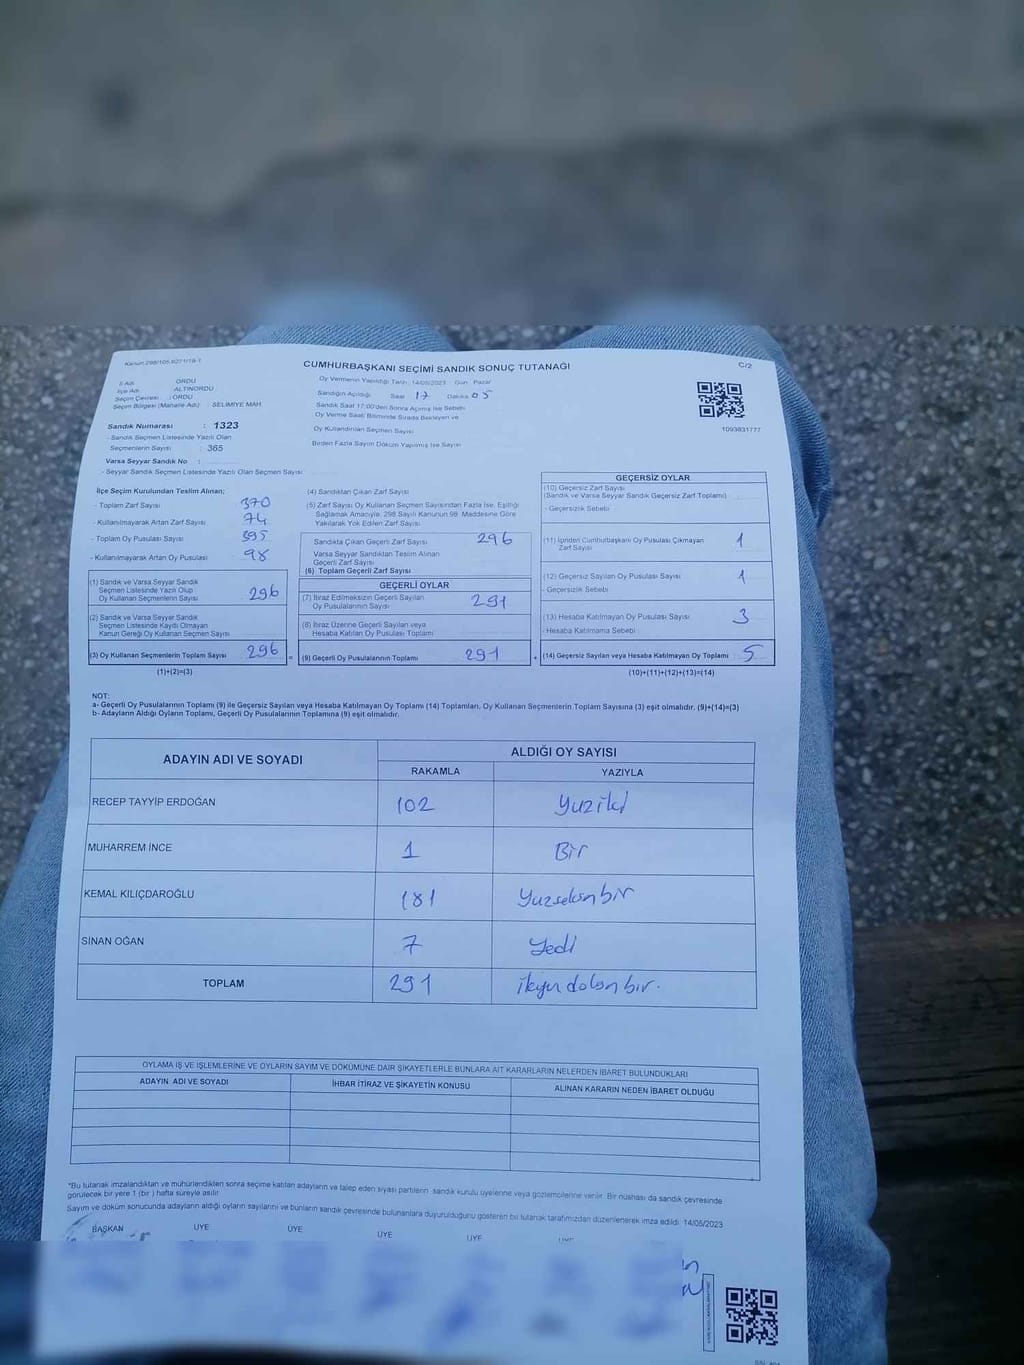 Kanun:298/105,6271/18-1
CUMHURBAŞKANI SEÇİMİ SANDIK SONUÇ TUTANAĞI
C/2
İl Adı : ORDU
İlçe Adı : ALTINORDU
Seçim Çevresi : ORDU
Seçim Bölgesi (Mahalle Adı) : SELİMİYE MAH.
Sandık Numarası : 1323
- Sandık Seçmen Listesinde Yazılı Olan
Seçmenlerin Sayısı : 365
Varsa Seyyar Sandık No :
- Seyyar Sandık Seçmen Listesinde Yazılı Olan Seçmen Sayısı:
Oy Vermenin Yapıldığı Tarih : 14/05/2023 Gün : Pazar
Sandığın Açıldığı Saat 17 Dakika 05
Sandık Saat 17:00'den Sonra Açılmış İse Sebebi
Oy Verme Saati Bitiminde Sırada Bekleyen ve
Oy Kullandırılan Seçmen Sayısı
Birden Fazla Sayım Döküm Yapılmış İse Sayısı
1093831777
İlçe Seçim Kurulundan Teslim Alınan;
- Toplam Zarf Sayısı : 370
- Kullanılmayarak Artan Zarf Sayısı : 74
- Toplam Oy Pusulası Sayısı : 395
- Kullanılmayarak Artan Oy Pusulası : 98
(1) Sandık ve Varsa Seyyar Sandık
Seçmen Listesinde Yazılı Olup
Oy Kullanan Seçmenlerin Sayısı 296
(2) Sandık ve Varsa Seyyar Sandık
Seçmen Listesinde Kaydı Olmayan
Kanun Gereği Oy Kullanan Seçmen Sayısı
(3) Oy Kullanan Seçmenlerin Toplam Sayısı 296
(1)+(2)=(3)
(4) Sandıktan Çıkan Zarf Sayısı
(5) Zarf Sayısı Oy Kullanan Seçmen Sayısından Fazla İse, Eşitliği
Sağlamak Amacıyla, 298 Sayılı Kanunun 98. Maddesine Göre
Yakılarak Yok Edilen Zarf Sayısı
Sandıkta Çıkan Geçerli Zarf Sayısı 296
Varsa Seyyar Sandıktan Teslim Alınan
Geçerli Zarf Sayısı
(6) Toplam Geçerli Zarf Sayısı
GEÇERLİ OYLAR
(7) İtiraz Edilmeksizin Geçerli Sayılan
Oy Pusulalarının Sayısı 291
(8) İtiraz Üzerine Geçerli Sayılan veya
Hesaba Katılan Oy Pusulası Toplamı
= (9) Geçerli Oy Pusulalarının Toplamı 291
GEÇERSİZ OYLAR
(10) Geçersiz Zarf Sayısı
(Sandık ve Varsa Seyyar Sandık Geçersiz Zarf Toplamı)
- Geçersizlik Sebebi
(11) İçinden Cumhurbaşkanı Oy Pusulası Çıkmayan
Zarf Sayısı 1
(12) Geçersiz Sayılan Oy Pusulası Sayısı 1
- Geçersizlik Sebebi
(13) Hesaba Katılmayan Oy Pusulası Sayısı 3
- Hesaba Katılmama Sebebi
+ (14) Geçersiz Sayılan veya Hesaba Katılmayan Oy Toplamı : 5
(10)+(11)+(12)+(13)=(14)
NOT:
a- Geçerli Oy Pusulalarının Toplamı (9) ile Geçersiz Sayılan veya Hesaba Katılmayan Oy Toplamı (14) Toplamları, Oy Kullanan Seçmenlerin Toplam Sayısına (3) eşit olmalıdır. (9)+(14)=(3)
b- Adayların Aldığı Oyların Toplamı, Geçerli Oy Pusulalarının Toplamına (9) eşit olmalıdır.
ADAYIN ADI VE SOYADI ALDIĞI OY SAYISI
RAKAMLA YAZIYLA
RECEP TAYYİP ERDOĞAN 102 Yüziki
MUHARREM İNCE 1 Bir
KEMAL KILIÇDAROĞLU 181 Yüzseksenbir
SİNAN OĞAN 7 Yedi
TOPLAM 291
OYLAMA İŞ VE İŞLEMLERİNE VE OYLARIN SAYIM VE DÖKÜMÜNE DAİR ŞİKAYETLERLE BUNLARA AİT KARARLARIN NELERDEN İBARET BULUNDUKLARI
ADAYIN ADI VE SOYADI İHBAR İTİRAZ VE ŞİKAYETİN KONUSU ALINAN KARARIN NEDEN İBARET OLDUĞU
*Bu tutanak imzalandıktan ve mühürlendikten sonra seçime katılan adayların ve talep eden siyasi partilerin sandık kurulu üyelerine veya gözlemcilerine verilir. Bir nüshası da sandık çevresinde
görülecek bir yere 1 (bir) hafta süreyle asılır.
Sayım ve döküm sonucunda adayların aldığı oyların sayılarını ve bunların sandık çevresinde bulunanlara duyurulduğunu gösteren bu tutanak tarafımızdan düzenlenerek imza edildi. 14/05/2023
BAŞKAN ÜYE ÜYE ÜYE ÜYE ÜYE